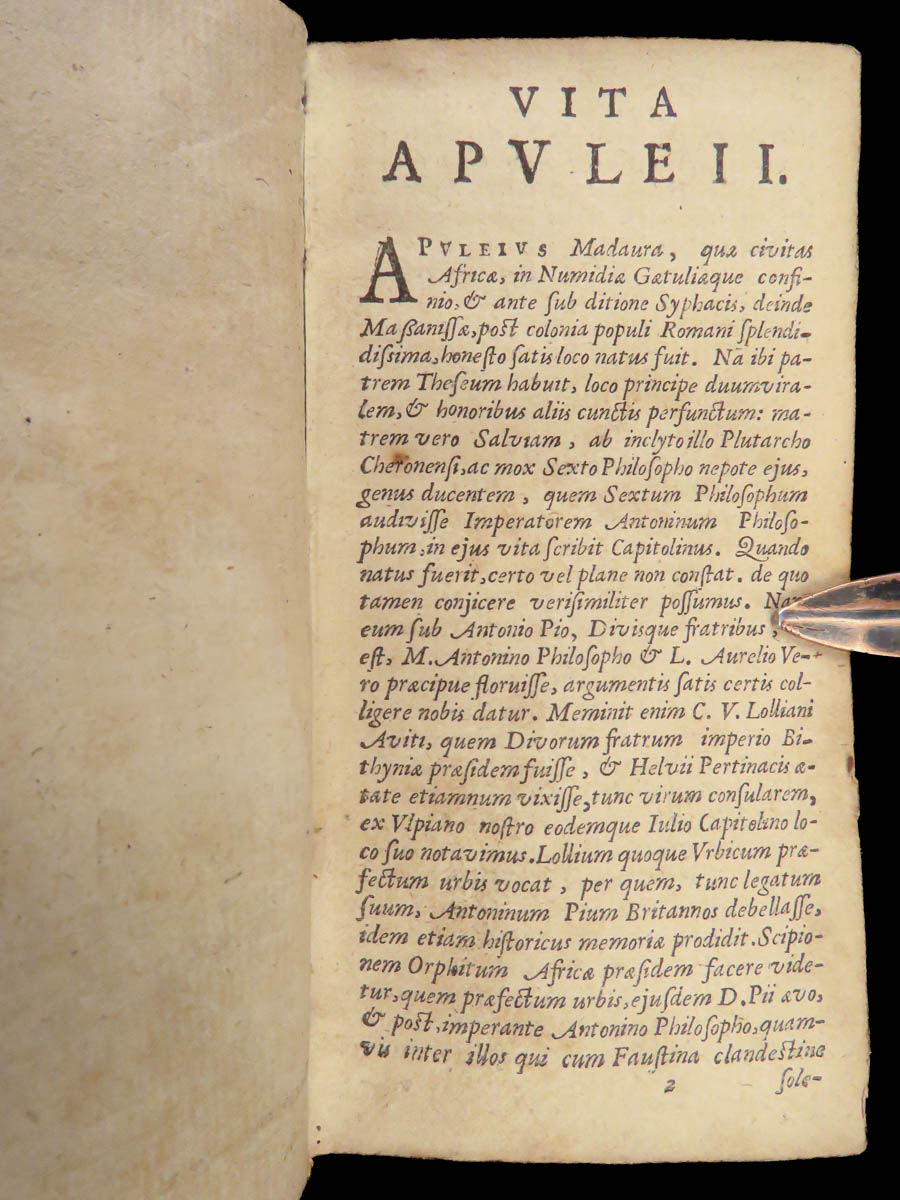 VITA
APVLEII.
APVLEIVS Madaura, quæ civitas
Africæ, in Numidiæ Gætuliæque confi-
nio, & ante sub ditione Syphacis, deinde
Maßanissæ, post colonia populi Romani splendi-
dissima, honesto satis loco natus fuit. Nã ibi pa-
trem Theseum habuit, loco principe duumvira-
lem, & honoribus aliis cunctis perfunctum: ma-
trem vero Salviam, ab inclyto illo Plutarcho
Cheronensi, ac mox Sexto Philosopho nepote ejus,
genus ducentem, quem Sextum Philosophum
audivisse Imperatorem Antoninum Philoso-
phum, in ejus vita scribit Capitolinus. Quando
natus fuerit, certo vel plane non constat. de quo
tamen conjicere verisimiliter possumus.
eum sub Antonio Pio, Divisque fratribus,
est, M. Antonino Philosopho & L. Aurelio Ve-
ro præcipue floruisse, argumentis satis certis col-
ligere nobis datur. Meminit enim C. V. Lolliani
Aviti, quem Divorum fratrum imperio Bi-
thyniæ præsidem fuisse, & Helvii Pertinacis æ-
tate etiamnum vixisse, tunc virum consularem,
ex Vlpiano nostro eodemque Iulio Capitolino lo-
co suo notavimus. Lollium quoque Vrbicum præ-
fectum urbis vocat, per quem, tunc legatum
suum, Antoninum Pium Britannos debellasse,
idem etiam historicus memoriæ prodidit. Scipio-
nem Orphitum Africæ præsidem facere vide-
tur, quem præfectum urbis, ejusdem D. Pii ævo,
& post, imperante Antonino Philosopho, quam-
vis inter illos qui cum Faustina clandestine
2 sole-